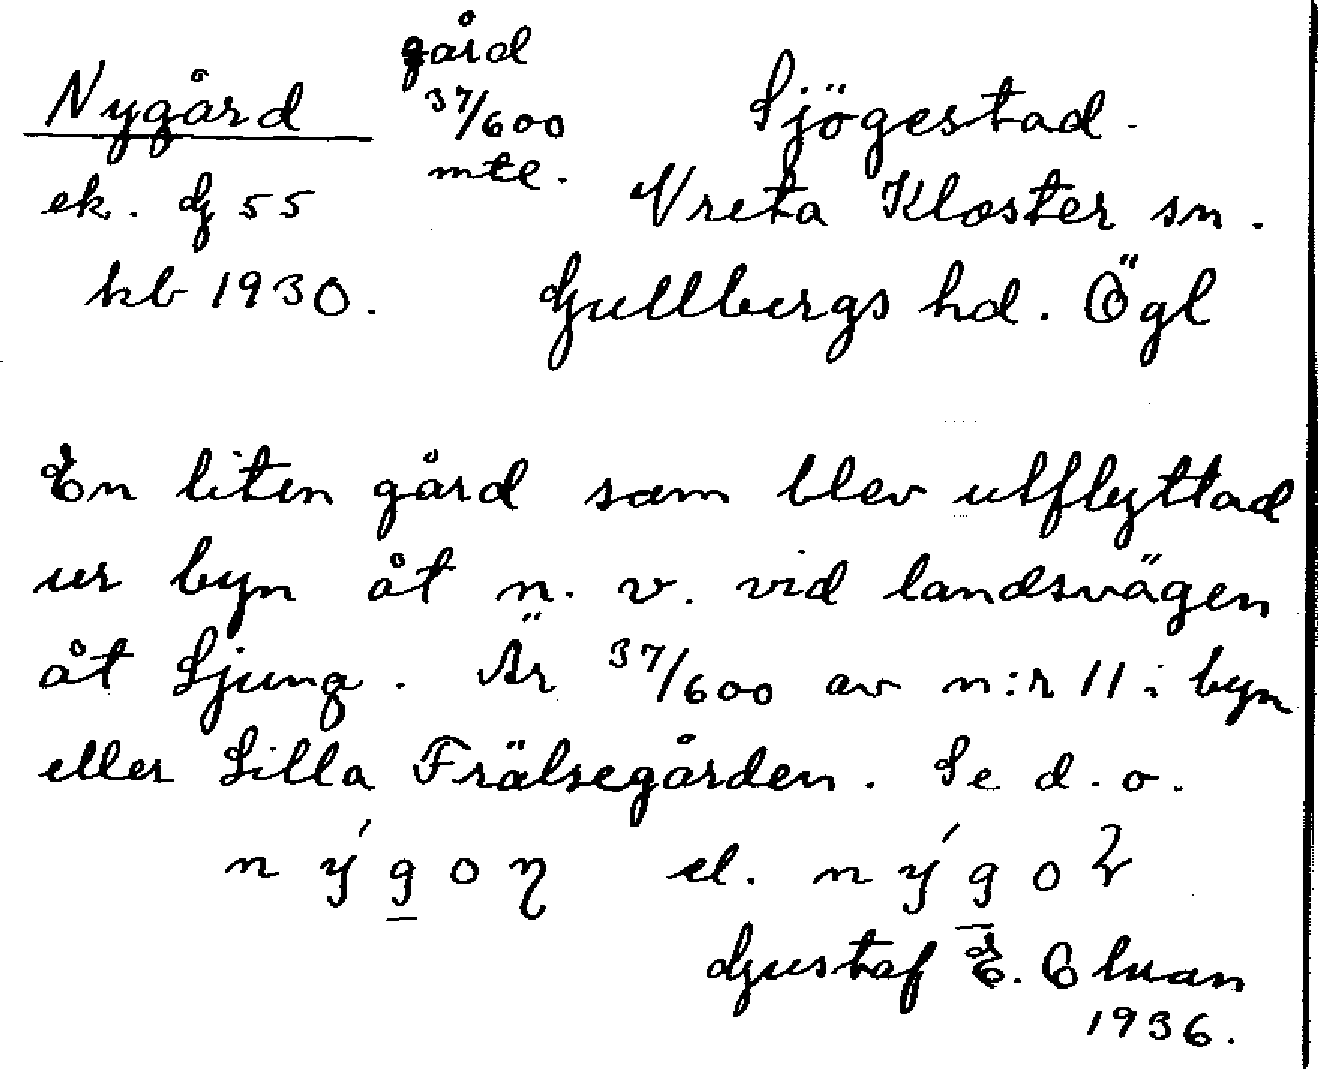 Nygård gård 37/600 mtl. Sjögestad.
ek. G 55 Vreta Kloster sn.
kb 1930. Gullbergs hd. Ögl
En liten gård som blev utflyttad
ur byn åt n. v. vid landsvägen
åt Ljung. Är 37/600 av n:r 11 i byn
eller Lilla Frälsegården. Se d. o.
nýgoɳ el. nýgo
Gustaf E.
1936.